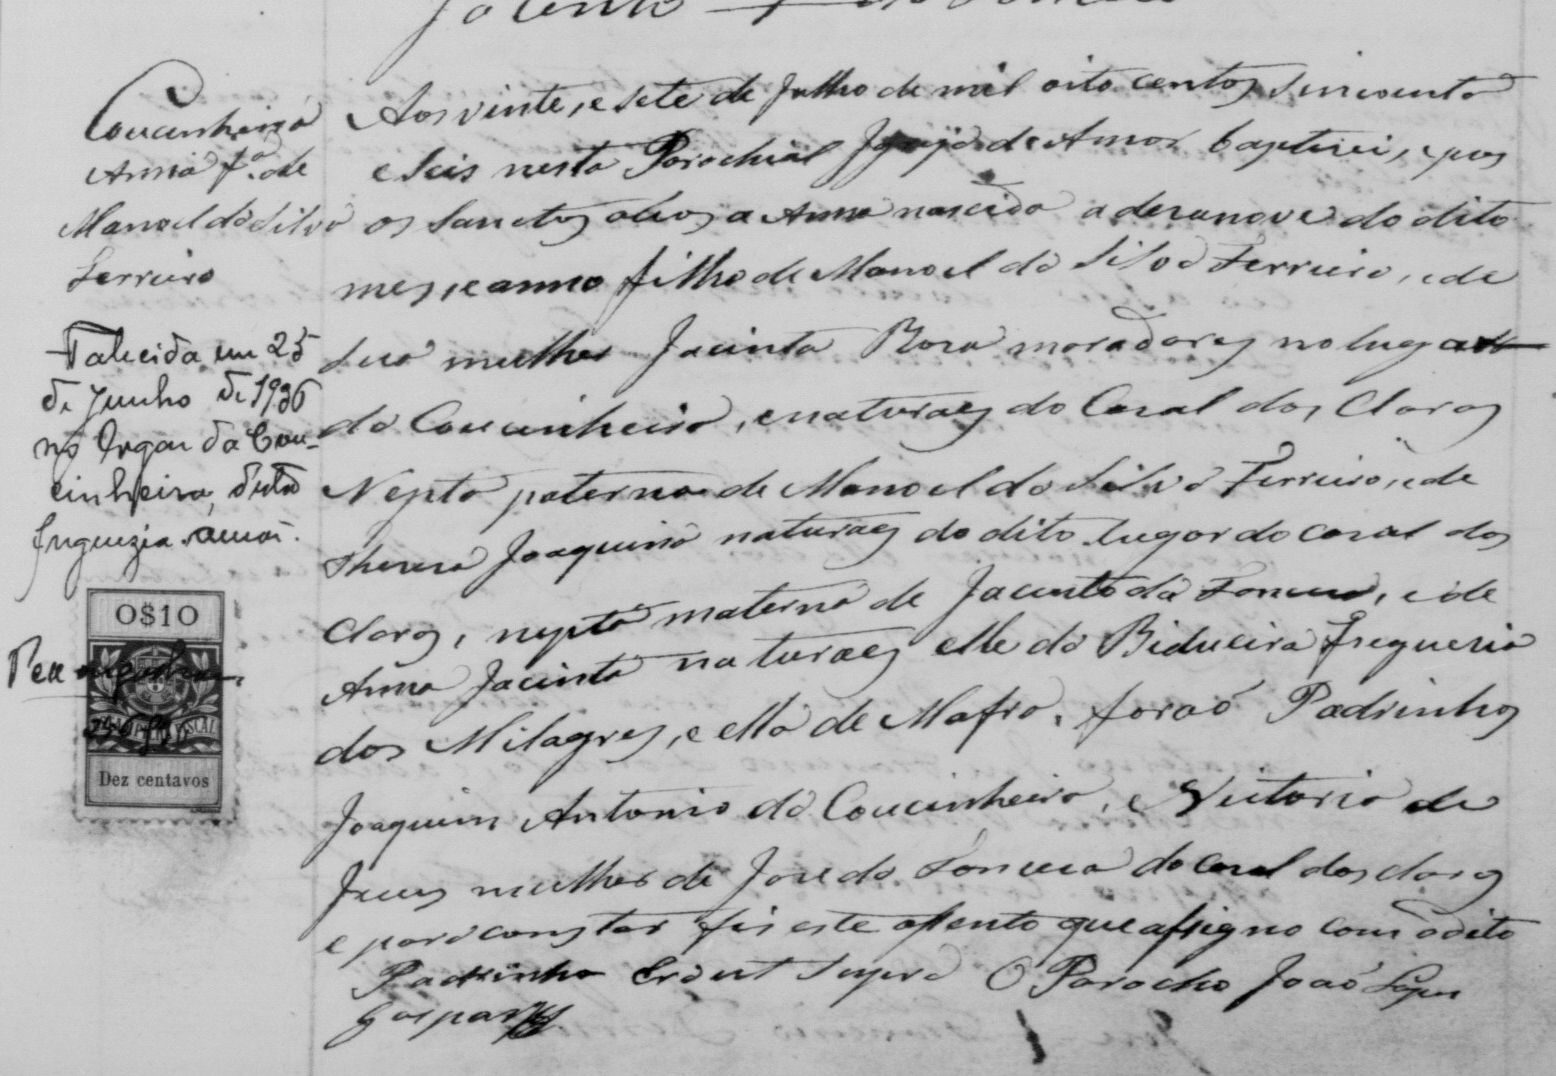 Coucinheira
Anna f.ª de
Manoel da Silva
Ferreira
Falecida em 25
de Junho de 1936
no lugar da Cou-
cinheira, desta
freguezia
0$10
Dez centavos
Aos vinte, e sete de Julho de mil oito centos sincoenta
e seis nesta Parochial Igreja de Amor baptizei, e pus
os Sanctos oleos a Anna nascida a dezanove do dito
mes, e anno filha de Manoel da Silva Ferreira, e de
sua mulher Jacinta Rosa moradores no lugar
da Coucinheira, e naturaes do Casal dos Claros
Nepta paterna de Manoel da Silva Ferreira, e de
Theresa Joaquina naturaes do dito lugar do casal dos
Claros, nepta materna de Jacinto da Fonceca, e de
Anna Jacinta naturaes elle da Bidueira Freguesia
dos Milagres, e ella de Mafra. foraõ Padrinhos
Joaquim Antonio da Coucinheira, e Victoria de
Jesus mulher de Jose da Fonceca do casal dos claros
e para constar fis este assento que assigno com o dito
Padrinho Era ut supra O Parocho Joaõ Lopes
Gaspar